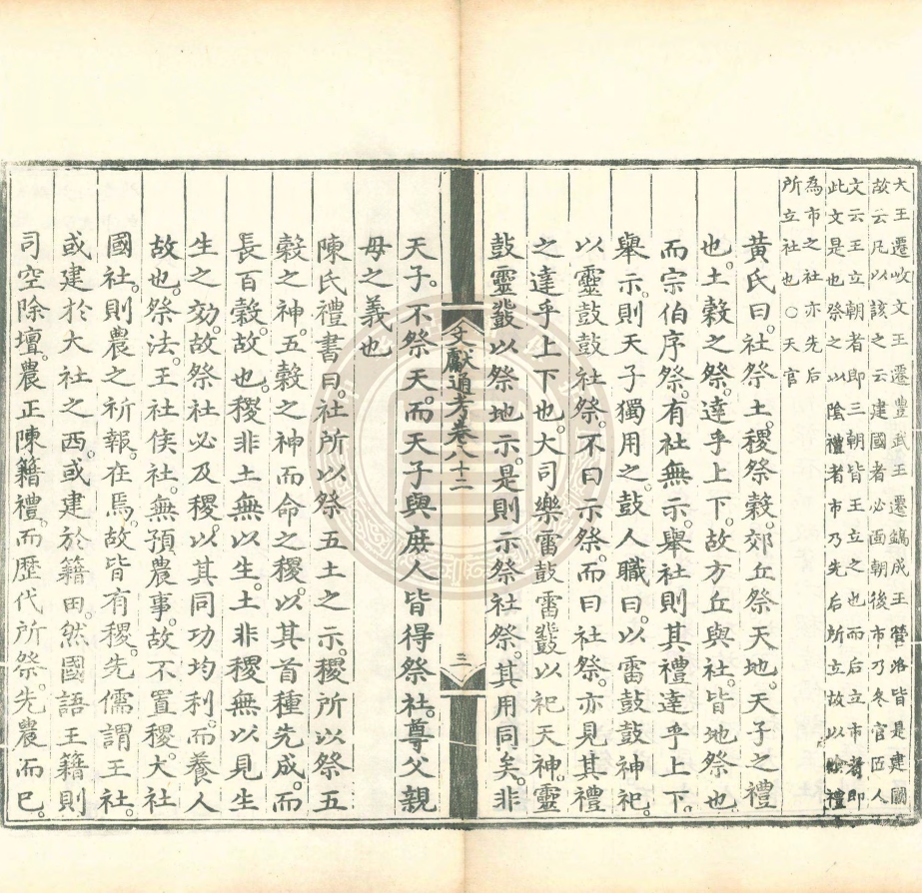 大王遷岐文王遷豐武王遷鎬成王營洛皆是建國
故云凡以該之云建國者必面朝後市乃冬官匠人
文云王立朝者即三朝皆王立之也而后立市者即
此文是也祭之以陰禮者市乃先后所立故以陰禮
為市之社亦先后
所立社也○天官
黃氏曰社祭土稷祭穀郊丘祭天地天子之禮
也土穀之祭達乎上下故方丘與社皆地祭也
而宗伯序祭有社無示舉社則其禮達乎上下
舉示則天子獨用之鼓人職曰以雷鼓鼓神祀
以靈鼓鼓社祭不曰示祭而曰社祭亦見其禮
之達乎上下也大司樂雷鼓雷鼗以祀天神靈
鼓靈鼗以祭地示是則示祭社祭其用同矣非
文獻通考卷八十二
三
天子不祭天而天子與庶人皆得祭社尊父親
母之義也
陳氏禮書曰社所以祭五土之示稷所以祭五
穀之神五穀之神而命之稷以其首種先成而
長百穀故也稷非土無以生土非稷無以見生
生之効故祭社必及稷以其同功均利而養人
故也祭法王社侯社無預農事故不置稷大社
國社則農之祈報在焉故皆有稷先儒謂王社
或建於大社之西或建於籍田然國語王籍則
司空除壇農正陳籍禮而歷代所祭先農而已